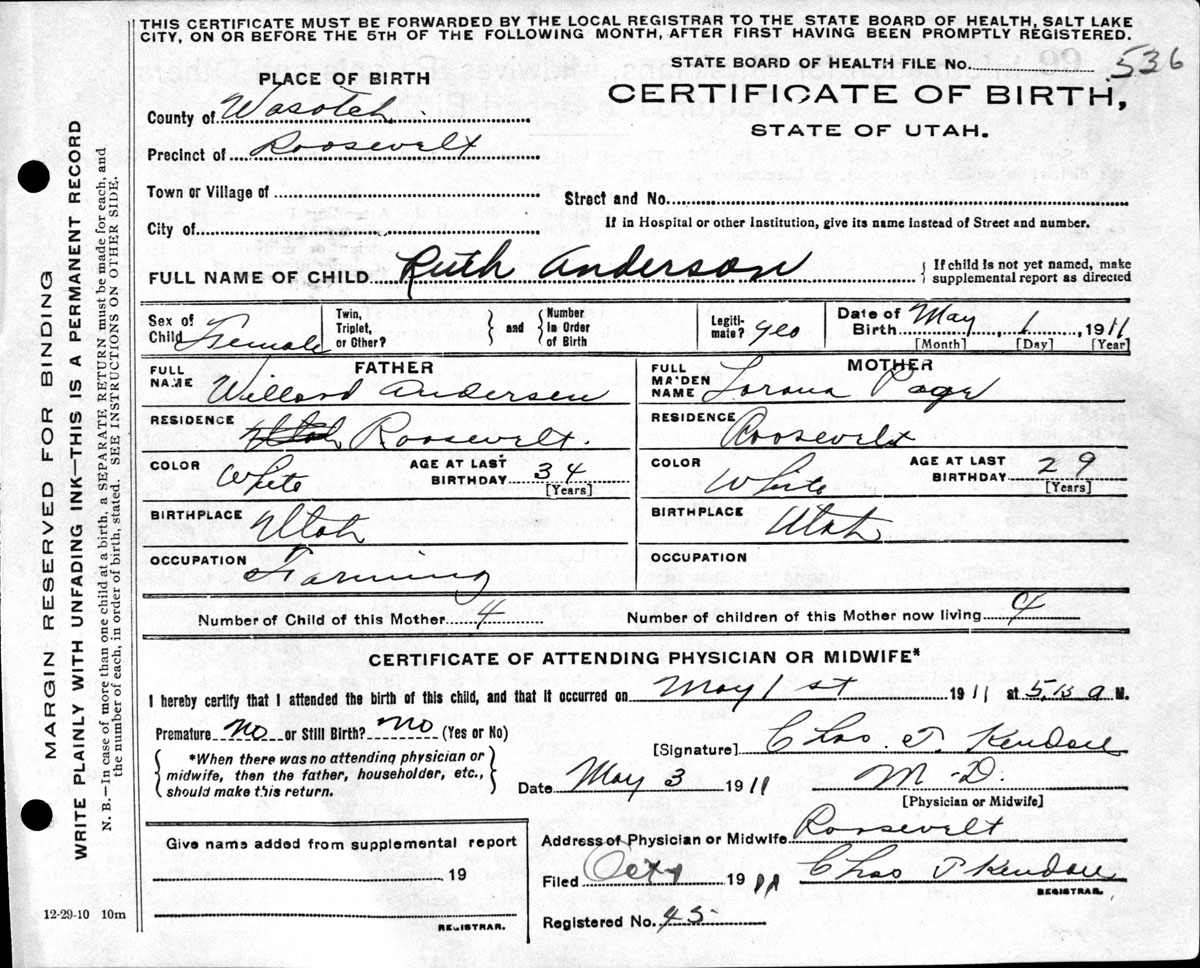 THIS CERTIFICATE MUST BE FORWARDED BY THE LOCAL REGISTRAR TO THE STATE BOARD OF HEALTH, SALT LAKE
CITY, ON OR BEFORE THE 5TH OF THE FOLLOWING MONTH, AFTER FIRST HAVING BEEN PROMPTLY REGISTERED.
STATE BOARD OF HEALTH FILE NO. 536
PLACE OF BIRTH
CERTIFICATE OF BIRTH,
STATE OF UTAH.
County of Wasatch
Precinct of Roosevelt
Town or Village of
Street and No.
City of
If in Hospital or other Institution, give its name instead of Street and number.
FULL NAME OF CHILD Ruth Anderson
If child is not yet named, make
supplemental report as directed
Sex of Child Female
Twin, Triplet, or Other?
and
Number In Order of Birth
Legitimate? yes
Date of Birth May 1 1911
[Month] [Day] [Year]
FATHER
FULL NAME Willard Andersen
RESIDENCE Utah Roosevelt.
COLOR White
AGE AT LAST BIRTHDAY 34
[Years]
BIRTHPLACE Utah
OCCUPATION Farming
MOTHER
FULL MAIDEN NAME Lorana Page
RESIDENCE Roosevelt
COLOR White
AGE AT LAST BIRTHDAY 29
[Years]
BIRTHPLACE Utah
OCCUPATION
Number of Child of this Mother 4
Number of children of this Mother now living 4
CERTIFICATE OF ATTENDING PHYSICIAN OR MIDWIFE*
I hereby certify that I attended the birth of this child, and that it occurred on May 1st 1911 at 5,15 a M.
Premature no or Still Birth? no (Yes or No)
*When there was no attending physician or
midwife, then the father, householder, etc.,
should make this return.
[Signature] Chas. T. Kendall
Date May 3 1911 M.D.
[Physician or Midwife]
Give name added from supplemental report
19
REGISTRAR.
Address of Physician or Midwife Roosevelt
Filed 1911 Chas T Kendall
REGISTRAR.
Registered No. 45
12-29-10 10m
MARGIN RESERVED FOR BINDING
WRITE PLAINLY WITH UNFADING INK—THIS IS A PERMANENT RECORD
N. B.—In case of more than one child at a birth, a SEPARATE RETURN must be made for each, and
the number of each, in order of birth, stated. SEE INSTRUCTIONS ON OTHER SIDE.